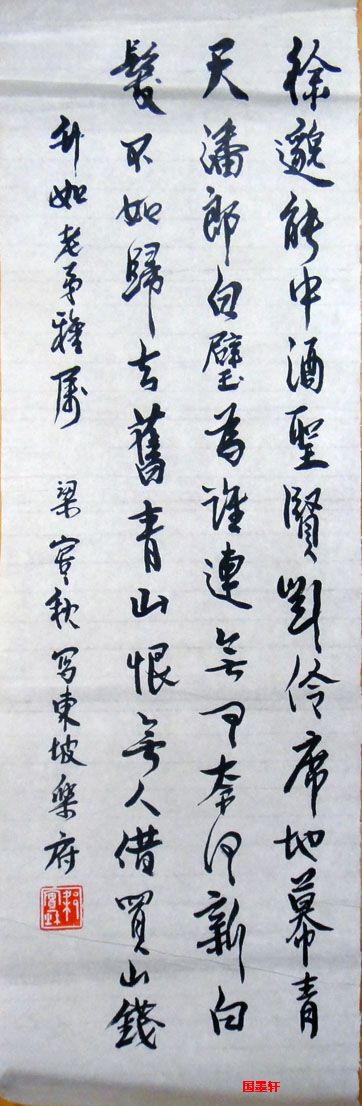 徐邈能中酒聖賢劉伶席地幕青
天潘郎白璧為誰連無可奈何新白
髮不如歸去舊青山恨無人借買山錢
升如老弟雅属 梁實秋写東坡樂府
国墨轩